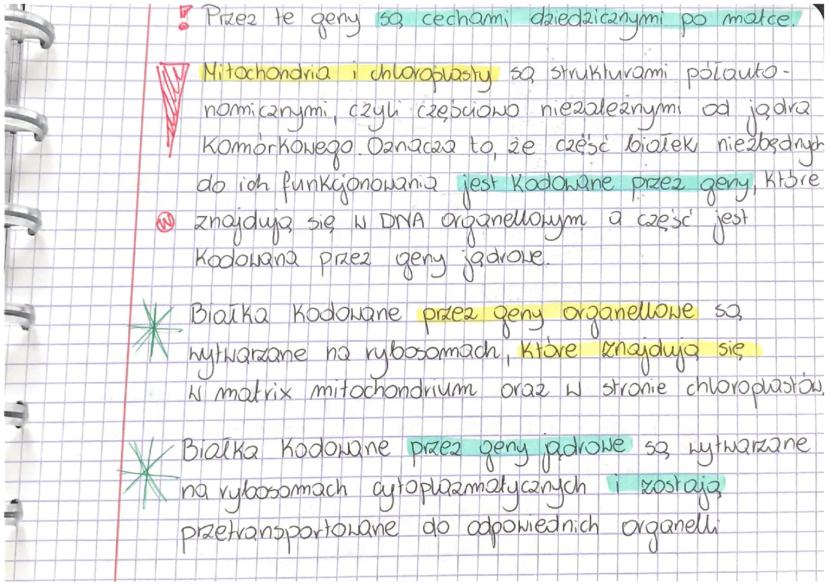 ! Przez te geny są cechami dziedzicznymi po matce.
Mitochondria i chloroplasty są strukturami półauto-
nomicznymi, czyli częściowo niezależnymi od jądra
komórkowego. Oznacza to, że część białek niezbędnych
do ich funkcjonowania jest kodowane przez geny, które
W znajdują się w DNA organellowym a część jest
kodowana przez geny jądrowe.
Białka kodowane przez geny organellowe są
wytwarzane na rybosomach, które znajdują się
w matrix mitochondrium oraz w stronie chloroplastów.
Białka kodowane przez geny jądrowe są wytwarzane
na rybosomach cytoplazmatycznych i zostają
przetransportowane do odpowiednich organelli